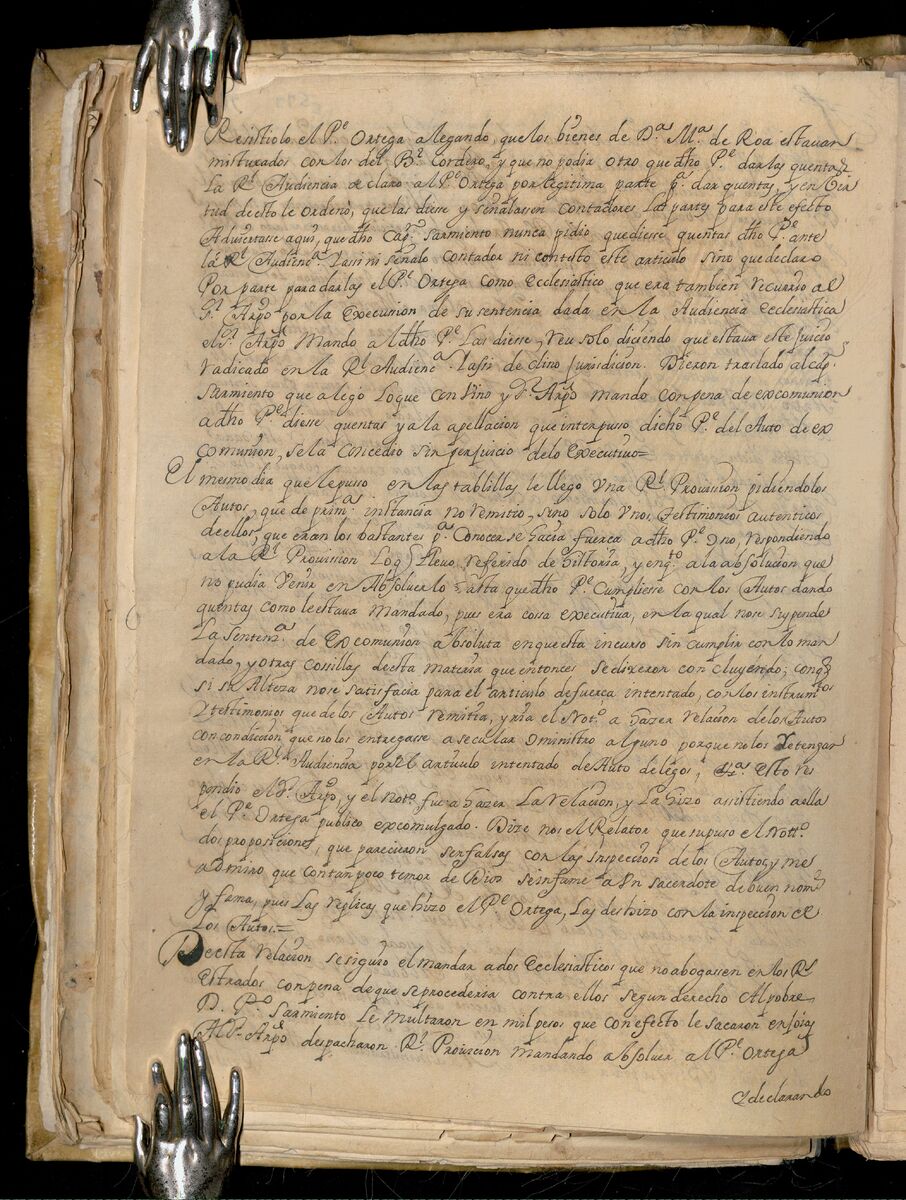 Resistiolo el Pe Ortega alegando, que los bienes de Da Ma de Roa estavan
misturados con los del Br Cordero, y que no podia otro que dho Pe dar las quentas
La Rl Audiencia declaro al Pe Ortega por legitima parte pa dar quentas, y en Vir
tud de esto le ordenò, que las diese y señalassen contadores las partes para este efecto
Adviertase aqui, que dho Capn Sarmiento nunca pidio que diesse quentas dho Pe ante
la Rl Audiena Yassi ni señalo contador ni contestò este articulo sino que declaro
Por parte para darlas el Pe Ortega como Ecclesiastico que era tambien recurrio al
Sr Arpo por la Execusion de su sentencia dada en la Audiencia Ecclesiastica
el Sr Arpo Mando al dho Pe Las diesse, reusolo diciendo que estava este juicio
radicado en la Rl Audiena Yassi declino Jurisdicion. Dieron traslado al capn
Sarmiento que alego Lo que convino y Sr Arpo mando con pena de excomunion
a dho Pe diesse quentas y a la apellacion que interpuso dicho Pe del Auto de ex
comunion, se la concedio sin perjuicio de lo Executivo=
El mesmo dia que le puso en las tablillas le llego Vna Rl Provission pidiendo los
Autos, que de prima instancia no remitio, sino solo Vnos Testimonios autenticos
de ellos, que eran los bastantes pa Conocer se hacia fuerca a dho Pe o no, respondiendo
a la Rl Provission Lo q llevo referido de historia, y en qto a la absolucion que
no podia Venir en Absolverlo hasta que dho Pe Cumpliesse con los Autos dando
quentas como le estava mandado, pues era cosa executiva, en la qual no se suspende
La Sentena de Excomunion absoluta en que esta incurso sin cumplir con lo man
dado, y otras cossillas desta materia que entonces se dixeron concluyendo; con q
si su Alteza no se satisfacia para el articulo de fuerca intentado, con los instrumtos
Y testimonios que de los Autos remitia, yria el Noto a hazer relacion de los Autos
con condicion que no los entregasse a secular o ministro alguno porque no los retengan
en la Rl Audiencia por el articulo intentado de Auto de legos, Esto res
pondio el Sr Arpo, y el Noto fue a hazer La relacion, y La hizo assistiendo a ella
el Pe Ortega publico excomulgado. Dize nos el Relator que supuso el Notto
dos proposiciones, que parecieron ser falsas con las inspeccion de los Autos, y me
admiro que con tan poco temor de Dios se infame a Vn sacerdote de buen nome
y fama, pues Las replicas que hizo el Pe Ortega, Las deshizo con la inspeccion de
Los Autos.=
De esta relacion se siguio el mandar a dos Ecclesiasticos que no abogassen en los Rs
Estrados con pena de que se procederia contra ellos segun derecho Al pobre
D. Po Sarmiento Le Multaron en mil pesos que con efecto le sacaron
Al Sr Arpo despacharon Rl Provicion mandando absolver al Pe Ortega
Y declarando